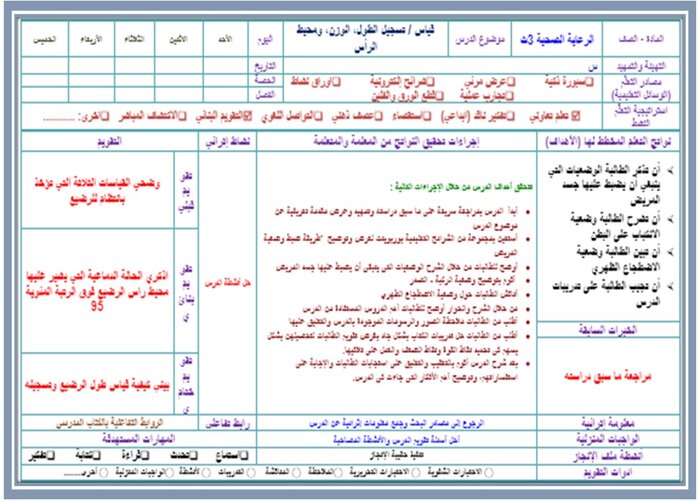 المادة - الصف
الرعاية الصحية 3ث
موضوع الدرس
قياس / تسجيل الطول، الوزن، ومحيط الرأس
اليوم
الأحد
الاثنين
الثلاثاء
الأربعاء
الخميس
التهيئة والتمهيد
س
التاريخ
مصادر التعلم
(الوسائل التعليمية)
سبورة ذكية
عرض مرئي
شرائح الكترونية
أوراق نشاط
تجارب عملية
قطع الورق والفلين
الحصة
الفصل
استراتيجية التعلم النشط
تعلم تعاوني
تفكير ناقد (ابداعي)
استقصاء
عصف ذهني
التواصل اللغوي
التقويم البنائي
الاكتشاف المباشر
أخرى: ...........
نواتج التعلم المخطط لها (الأهداف)
إجراءات تحقيق النواتج من المعلمة والمتعلمة
نشاط إثرائي
التقويم
أن تذكر الطالبة الوضعيات التي
ينبغي أن يضبط عليها جسد
المريض
أن تشرح الطالبة وضعية
الانكباب على البطن
أن تبين الطالبة وضعية
الاضطجاع الظهري
أن تجيب الطالبة على تدريبات
الدرس
الخبرات السابقة
مراجعة ما سبق دراسته
تتحقق أهداف الدرس من خلال الإجراءات التالية :
أبدأ الدرس بمراجعة سريعة على ما سبق دراسته وتمهيد وعرض مقدمة تعريفية عن
موضوع الدرس
أستعين بمجموعة من الشرائح التعليمية بوربوينت لعرض وتوضيح طريقة ضبط وضعية
المريض
أوضح للطالبات من خلال الشرح الوضعيات التي ينبغي أن يضبط عليها جسد المريض
أقوم بتوضيح وضعية الركبة - الصدر
أناقش الطالبات حول وضعية الاضطجاع الظهري
من خلال الشرح والحوار أوضح للطالبات أهم الدروس المستفادة من الدرس
أطلب من الطالبات ملاحظة الصور والرسومات الموجودة بالدرس والتعليق عليها
أطلب من الطالبات حل تدريبات الكتاب بشكل جاد بغرض تقويم الطالبات لتحصيلهن بشكل
يسهم في تحديد نقاط القوة ونقاط الضعف والعمل على تلافيها.
بعد شرح الدرس أقوم بالتعقيب والتعليق على استجابات الطالبات والإجابة على
استفساراتهم، وتوضيح أهم الأفكار التي جاءت في الدرس.
حل أنشطة الدرس
تقو
يم
قبلي
وضحي القياسات الثلاثة التي تؤخذ
بانتظام للرضيع
تقو
يم
بنائ
ي
اذكري الحالة الدماغية التي يشير عليها
محيط رأس الرضيع فوق الرتبة المئوية
95
تقو
يم
ختام
ي
بيني كيفية قياس طول الرضيع وتسجيله
معلومة إثرائية
الرجوع إلى مصادر البحث وجمع معلومات إثرائية عن الدرس
رابط تفاعلي
الروابط التفاعلية بالكتاب المدرسي
الواجبات المنزلية
أحل أسئلة تقويم الدرس والأنشطة المصاحبة
المهارات المستهدفة
أنشطة ملف الإنجاز
تعاينة حقيبة الإنجاز
استماع
تحدث
قراءة
كتابة
تفكير
أدوات التقويم
الاختبارات الشفوية
الاختبارات التحريرية
الملاحظة
المناقشة
التدريبات
الأنشطة
الواجبات المنزلية
أخرى.......